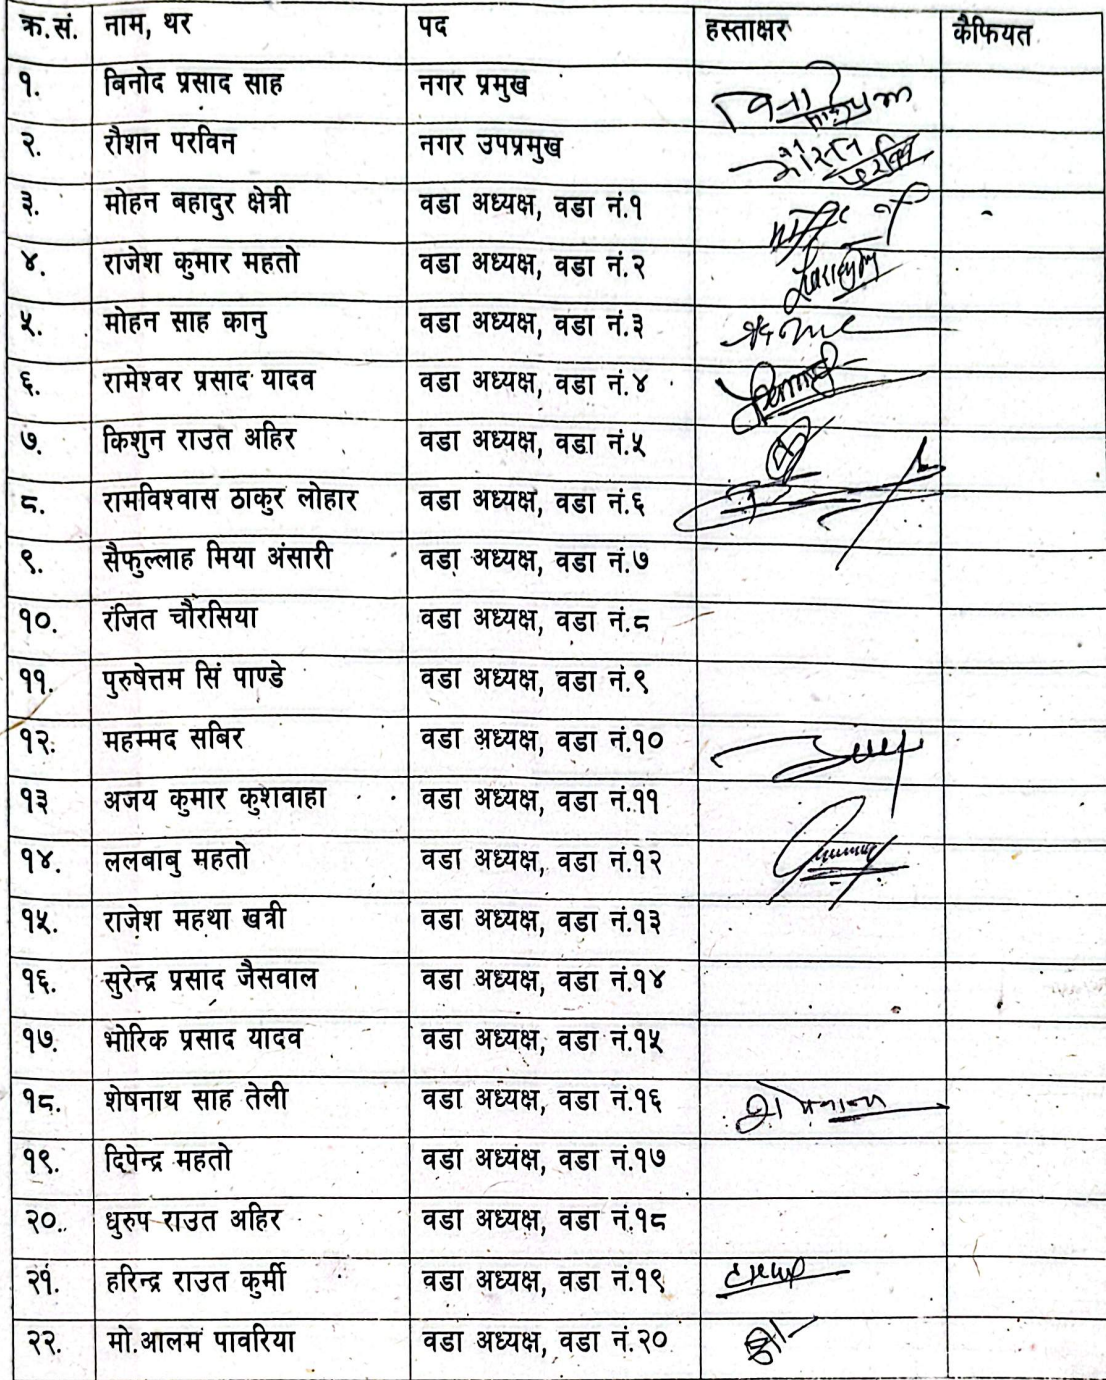 क्र.सं. नाम, थर पद हस्ताक्षर कैफियत
१. बिनोद प्रसाद साह नगर प्रमुख
२. रौशन परविन नगर उपप्रमुख
३. मोहन बहादुर क्षेत्री वडा अध्यक्ष, वडा नं.१
४. राजेश कुमार महतो वडा अध्यक्ष, वडा नं.२
५. मोहन साह कानु वडा अध्यक्ष, वडा नं.३
६. रामेश्वर प्रसाद यादव वडा अध्यक्ष, वडा नं.४
७. किशुन राउत अहिर वडा अध्यक्ष, वडा नं.५
८. रामविश्वास ठाकुर लोहार वडा अध्यक्ष, वडा नं.६
९. सैफुल्लाह मिया अंसारी वडा अध्यक्ष, वडा नं.७
१०. रंजित चौरसिया वडा अध्यक्ष, वडा नं.८
११. पुरुषेत्तम सिं पाण्डे वडा अध्यक्ष, वडा नं.९
१२. महम्मद सबिर वडा अध्यक्ष, वडा नं.१०
१३ अजय कुमार कुशवाहा वडा अध्यक्ष, वडा नं.११
१४. ललबाबु महतो वडा अध्यक्ष, वडा नं.१२
१५. राजेश महथा खत्री वडा अध्यक्ष, वडा नं.१३
१६. सुरेन्द्र प्रसाद जैसवाल वडा अध्यक्ष, वडा नं.१४
१७. भोरिक प्रसाद यादव वडा अध्यक्ष, वडा नं.१५
१८. शेषनाथ साह तेली वडा अध्यक्ष, वडा नं.१६
१९. दिपेन्द्र महतो वडा अध्यक्ष, वडा नं.१७
२०. धुरुप राउत अहिर वडा अध्यक्ष, वडा नं.१८
२१. हरिन्द्र राउत कुर्मी वडा अध्यक्ष, वडा नं.१९
२२. मो.आलम पावरिया वडा अध्यक्ष, वडा नं.२०